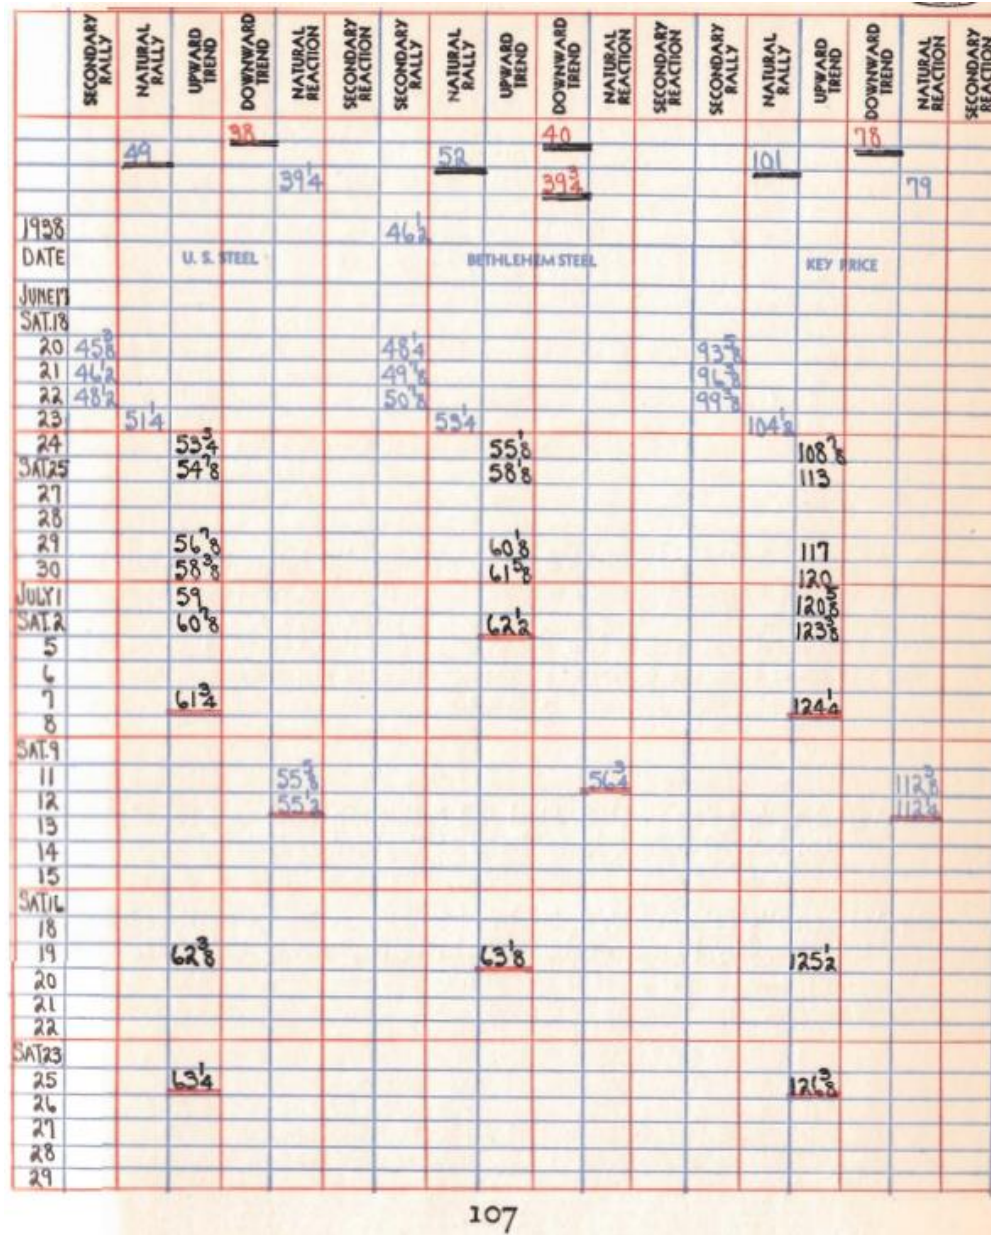 SECONDARY RALLY NATURAL RALLY UPWARD TREND DOWNWARD TREND NATURAL REACTION SECONDARY REACTION SECONDARY RALLY NATURAL RALLY UPWARD TREND DOWNWARD TREND NATURAL REACTION SECONDARY REACTION SECONDARY RALLY NATURAL RALLY UPWARD TREND DOWNWARD TREND NATURAL REACTION SECONDARY REACTION
38 40 78
49 52 101
39 1/4 39 3/4 79
1938 46 1/2
DATE U. S. STEEL BETHLEHEM STEEL KEY PRICE
JUNE 17
SAT. 18
20 45 3/8 48 1/4 93 5/8
21 46 1/2 49 7/8 96 3/8
22 48 1/2 50 7/8 99 3/8
23 51 1/4 53 1/4 104 1/2
24 53 3/4 55 1/8 108 7/8
SAT 25 54 7/8 58 1/8 113
27
28
29 56 7/8 60 1/8 117
30 58 3/8 61 5/8 120
JULY 1 59 120 5/8
SAT. 2 60 7/8 62 1/2 123 3/8
5
6
7 61 3/4 124 1/4
8
SAT. 9
11 55 5/8 56 3/4 112 3/8
12 55 1/2 112 1/4
13
14
15
SAT 16
18
19 62 3/8 63 1/8 125 1/2
20
21
22
SAT 23
25 63 1/4 126 3/8
26
27
28
29
107